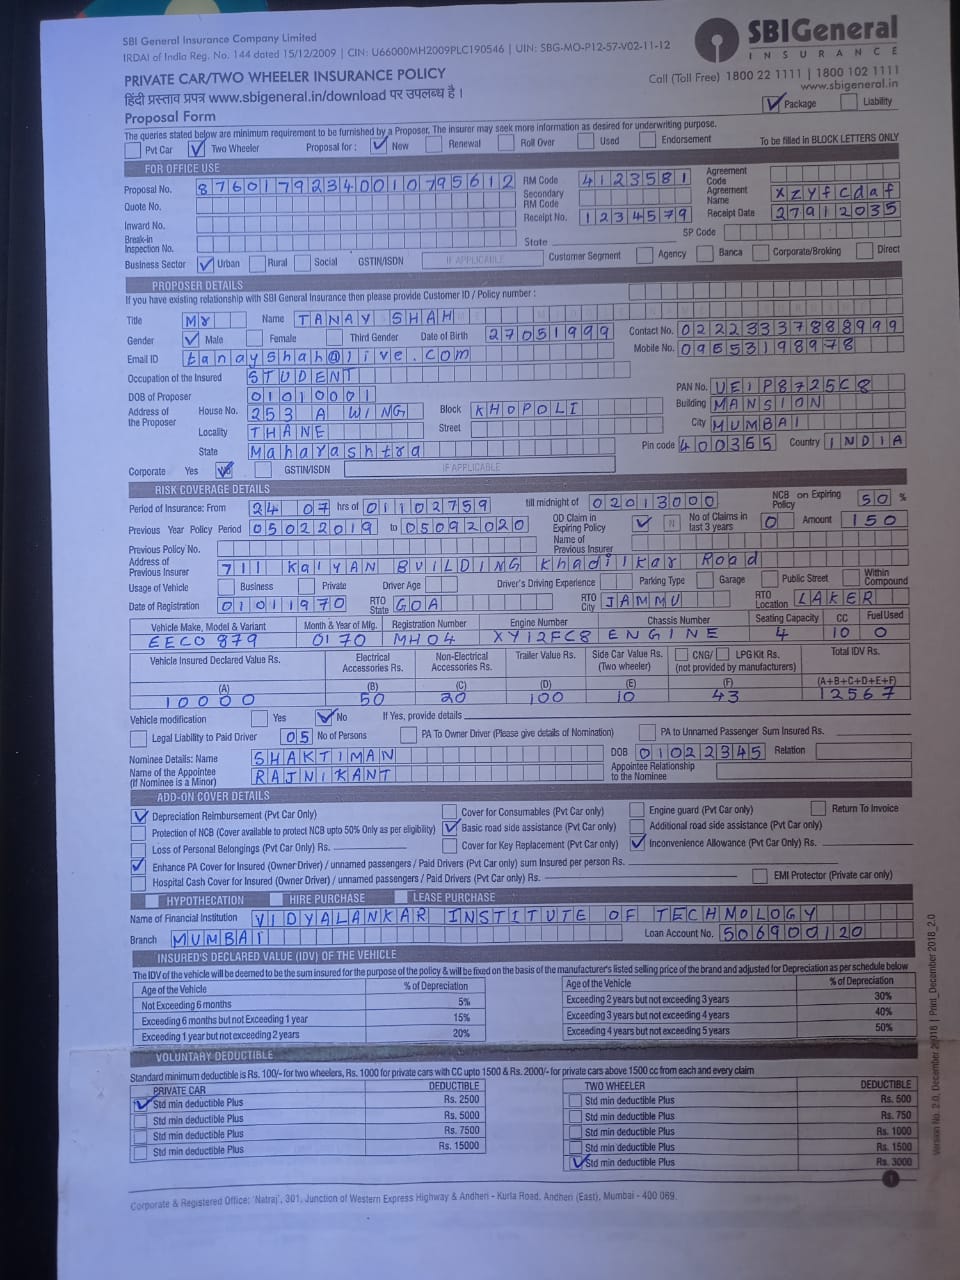 SBI General Insurance Company Limited
IRDAI of India Reg. No. 144 dated 15/12/2009 | CIN: U66000MH2009PLC190546 | UIN: SBG-MO-P12-57-V02-11-12
SBIGeneral
INSURANCE
PRIVATE CAR/TWO WHEELER INSURANCE POLICY
Call (Toll Free) 1800 22 1111 | 1800 102 1111
www.sbigeneral.in
हिंदी प्रस्ताव प्रपत्र www.sbigeneral.in/download पर उपलब्ध है।
Package Liability
Proposal Form
The queries stated below are minimum requirement to be furnished by a Proposer. The insurer may seek more information as desired for underwriting purpose.
Pvt Car Two Wheeler Proposal for : New Renewal Roll Over Used Endorsement To be filled in BLOCK LETTERS ONLY
FOR OFFICE USE
Proposal No. 87601792340010795612 RM Code 4123581 Agreement Code
Quote No. Secondary RM Code Agreement Name xzyfcdaf
Inward No. Receipt No. 1234579 Receipt Date 27912035
Break-in Inspection No. State SP Code
Business Sector Urban Rural Social GSTIN/ISDN IF APPLICABLE Customer Segment Agency Banca Corporate/Broking Direct
PROPOSER DETAILS
If you have existing relationship with SBI General Insurance then please provide Customer ID / Policy number :
Title Mr Name TANAY SHAH
Gender Male Female Third Gender Date of Birth 27051999 Contact No. 02223337888999
Email ID tanayshah@live.com Mobile No. 09653198978
Occupation of the Insured STUDENT
DOB of Proposer 01010001 PAN No. UEIP8725C8
Address of the Proposer House No. 253 A WING Block KHOPOLI Building MANSION
Locality THANE Street City MUMBAI
State Maharashtra Pin code 400365 Country INDIA
Corporate Yes No GSTIN/ISDN IF APPLICABLE
RISK COVERAGE DETAILS
Period of Insurance: From 24 07 hrs of 01102759 till midnight of 02013000 NCB on Expiring Policy 50 %
Previous Year Policy Period 05022019 to 05092020 OD Claim in Expiring Policy N No of Claims in last 3 years 0 Amount 150
Previous Policy No. Name of Previous Insurer
Address of Previous Insurer 711 KalYAN BUILDING Khadilkar Road
Usage of Vehicle Business Private Driver Age Driver's Driving Experience Parking Type Garage Public Street Within Compound
Date of Registration 01011970 RTO State GOA RTO City JAMMU RTO Location LAKER
Vehicle Make, Model & Variant Month & Year of Mfg. Registration Number Engine Number Chassis Number Seating Capacity CC Fuel Used
EECO 879 0170 MH04 XY12FC8 ENGINE 4 10 0
Vehicle Insured Declared Value Rs. Electrical Accessories Rs. Non-Electrical Accessories Rs. Trailer Value Rs. Side Car Value Rs. (Two wheeler) CNG/ LPG Kit Rs. (not provided by manufacturers) Total IDV Rs.
(A) (B) (C) (D) (E) (F) (A+B+C+D+E+F)
10000 50 20 100 10 43 12567
Vehicle modification Yes No If Yes, provide details
Legal Liability to Paid Driver 05 No of Persons PA To Owner Driver (Please give details of Nomination) PA to Unnamed Passenger Sum Insured Rs.
Nominee Details: Name SHAKTIMAN DOB 01022345 Relation
Name of the Appointee (If Nominee is a Minor) RAJNIKANT Appointee Relationship to the Nominee
ADD-ON COVER DETAILS
Depreciation Reimbursement (Pvt Car Only) Cover for Consumables (Pvt Car only) Engine guard (Pvt Car only) Return To Invoice
Protection of NCB (Cover available to protect NCB upto 50% Only as per eligibility) Basic road side assistance (Pvt Car only) Additional road side assistance (Pvt Car only)
Loss of Personal Belongings (Pvt Car Only) Rs. Cover for Key Replacement (Pvt Car only) Inconvenience Allowance (Pvt Car Only) Rs.
Enhance PA Cover for Insured (Owner Driver) / unnamed passengers / Paid Drivers (Pvt Car only) sum Insured per person Rs.
Hospital Cash Cover for Insured (Owner Driver) / unnamed passengers / Paid Drivers (Pvt Car only) Rs. EMI Protector (Private car only)
HYPOTHECATION HIRE PURCHASE LEASE PURCHASE
Name of Financial Institution VIDYALANKAR INSTITUTE OF TECHNOLOGY
Branch MUMBAI Loan Account No. 506900120
INSURED'S DECLARED VALUE (IDV) OF THE VEHICLE
The IDV of the vehicle will be deemed to be the sum insured for the purpose of the policy & will be fixed on the basis of the manufacturer's listed selling price of the brand and adjusted for Depreciation as per schedule below
Age of the Vehicle % of Depreciation Age of the Vehicle % of Depreciation
Not Exceeding 6 months 5% Exceeding 2 years but not exceeding 3 years 30%
Exceeding 6 months but not Exceeding 1 year 15% Exceeding 3 years but not exceeding 4 years 40%
Exceeding 1 year but not exceeding 2 years 20% Exceeding 4 years but not exceeding 5 years 50%
VOLUNTARY DEDUCTIBLE
Standard minimum deductible is Rs. 100/- for two wheelers, Rs. 1000 for private cars with CC upto 1500 & Rs. 2000/- for private cars above 1500 cc from each and every claim
PRIVATE CAR DEDUCTIBLE TWO WHEELER DEDUCTIBLE
Std min deductible Plus Rs. 2500 Std min deductible Plus Rs. 500
Std min deductible Plus Rs. 5000 Std min deductible Plus Rs. 750
Std min deductible Plus Rs. 7500 Std min deductible Plus Rs. 1000
Std min deductible Plus Rs. 15000 Std min deductible Plus Rs. 1500
Std min deductible Plus Rs. 3000
1
Corporate & Registered Office: 'Natraj', 301, Junction of Western Express Highway & Andheri - Kurla Road, Andheri (East), Mumbai - 400 069.
Version No. 2.0, December 2018 | Print_December 2018_2.0